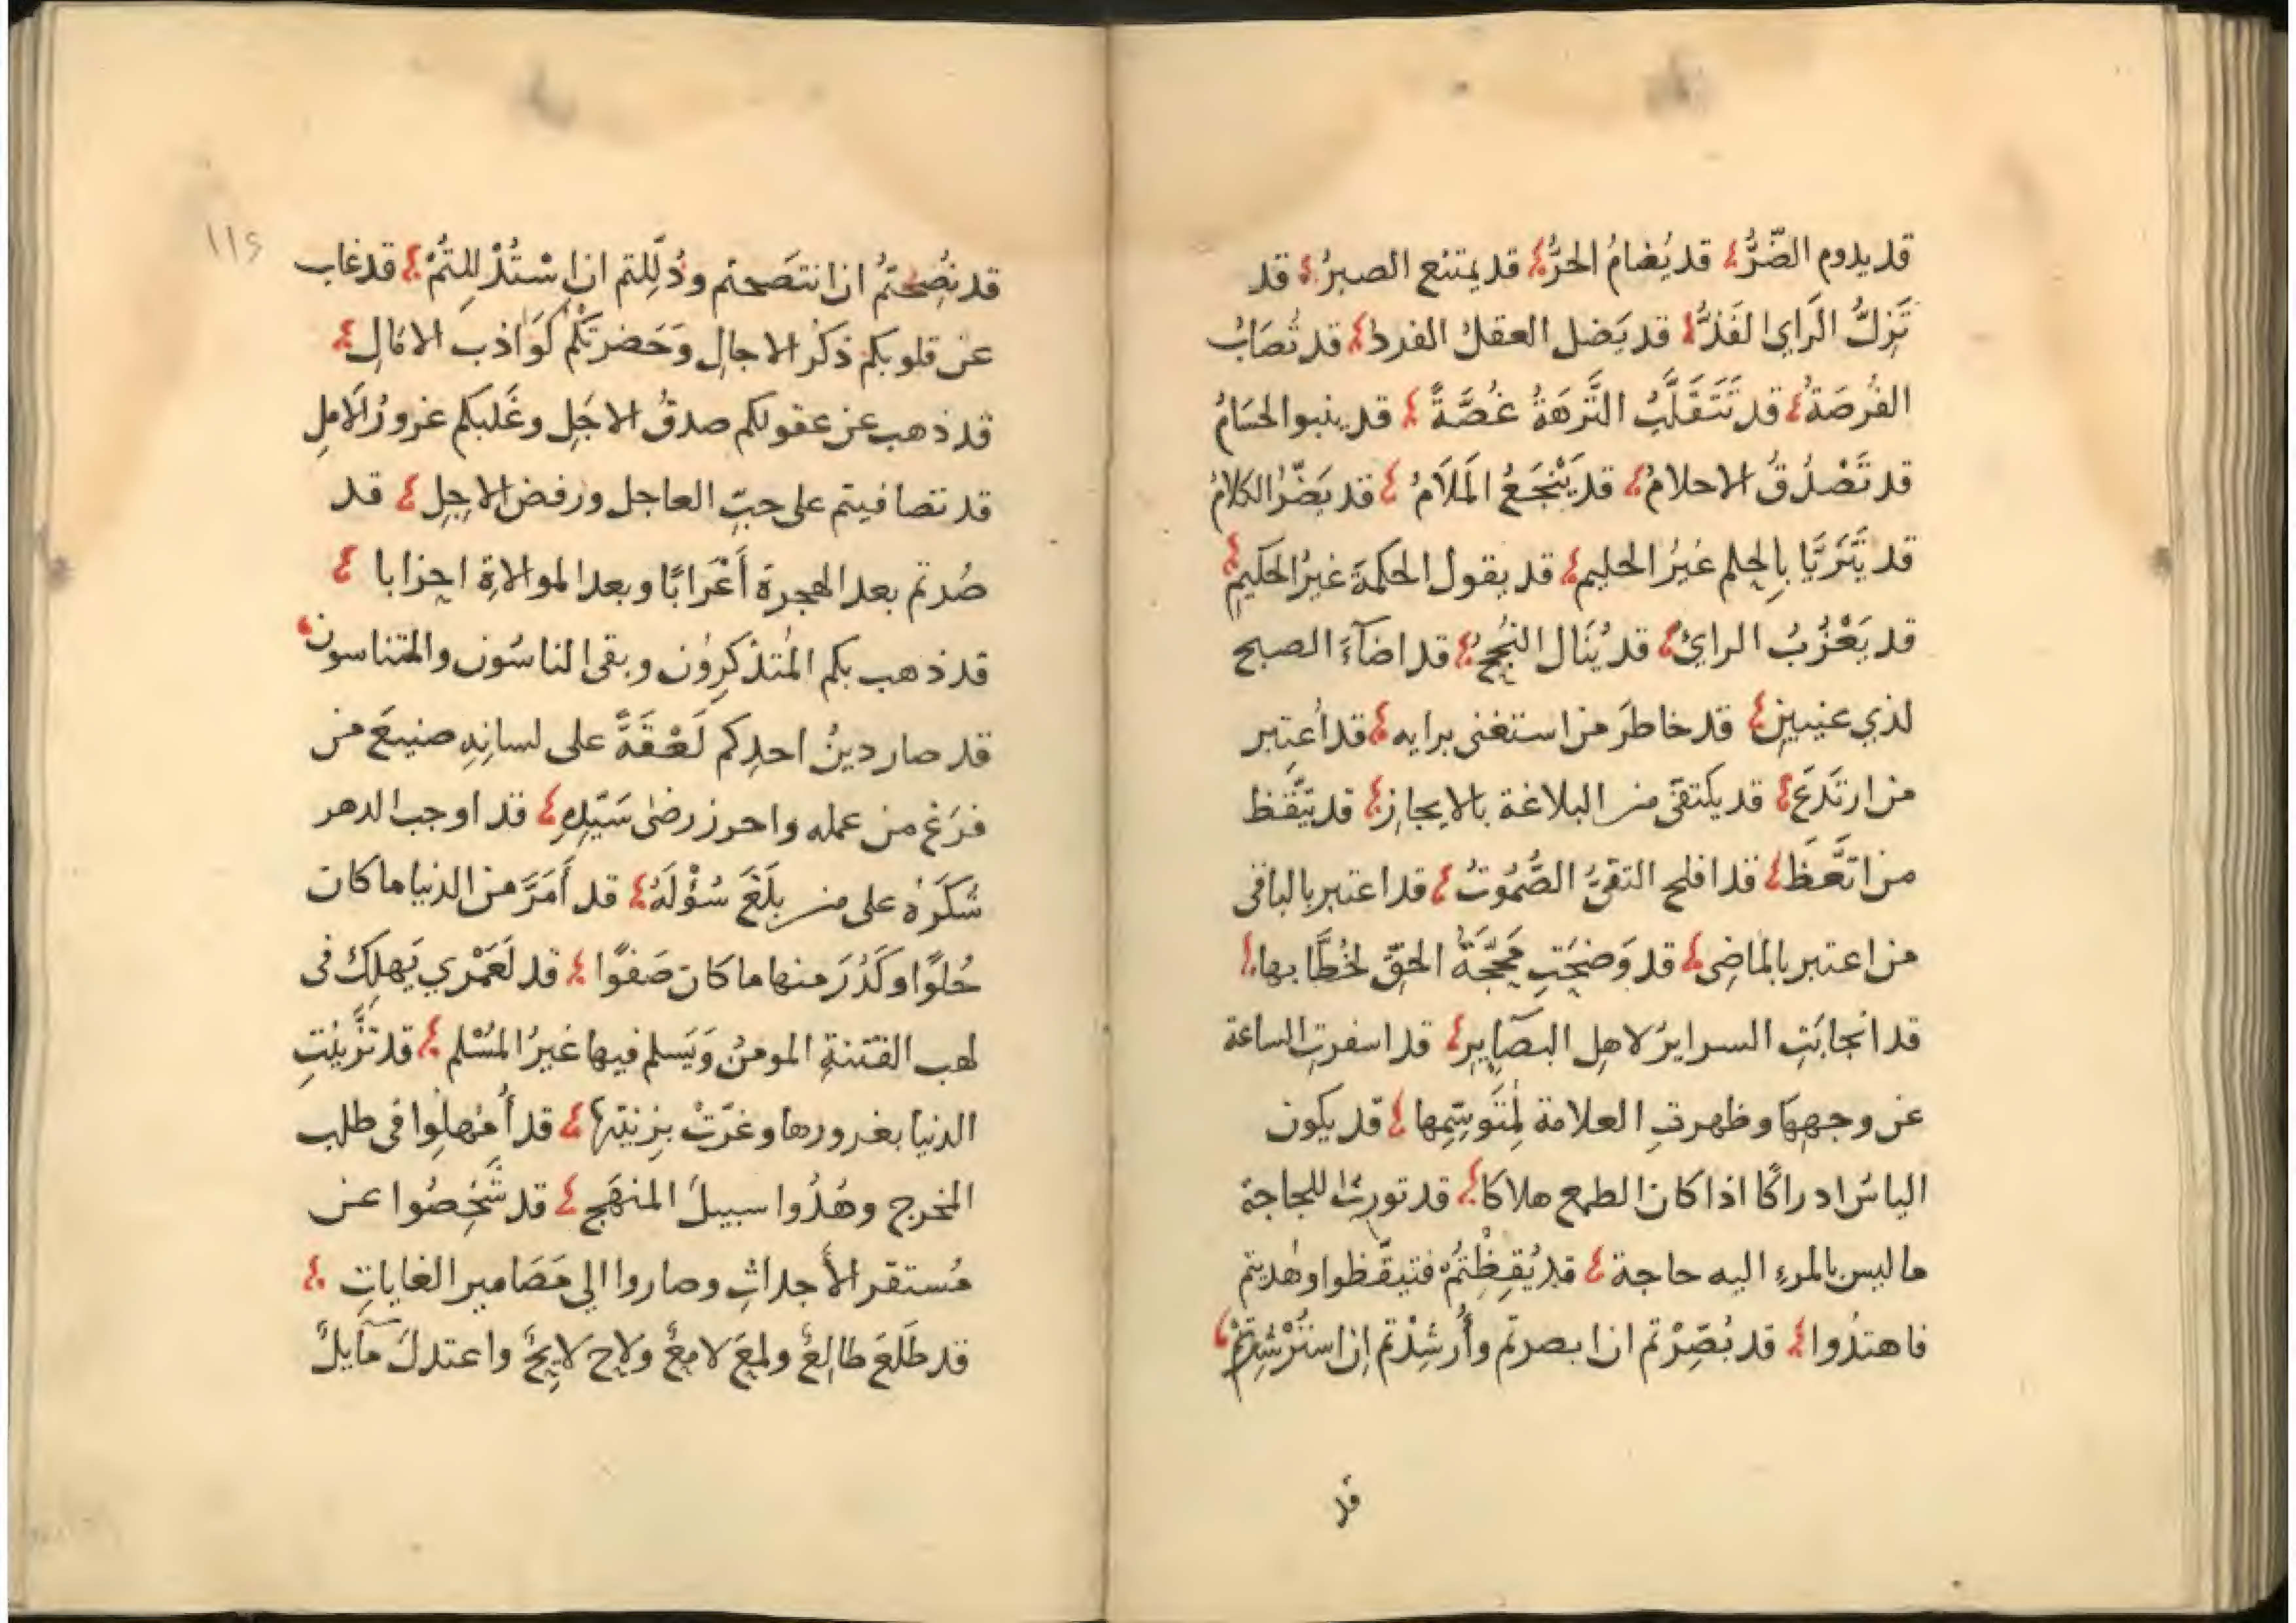 قد يدوم الضّرُّ قد يُضامُ الحرُّ قد يمتنع الصبرُ قد
تَزِلُّ الرَاي الفَذُّ قد يَضل العقلُ الفردُ قد تُصَابُ
الفُرصَةُ قد تَتَقَلَّبُ النَّزهَةُ غُصَّةً قد ينبوا الحسَامُ
قد تَصْدُقُ الاحلامُ قد يَنْجَعُ المَلَامُ قد يَضّرُ الكلامُ
قد يَتَزَيَّا بِالحِلم غيرُ الحليم قد يقول الحكمةَ غيرُ الحكيمِ
قد يَعْزُبُ الرايُ قد يُنَال النُجحُ قد اضآءَ الصبح
لذي عنيين قد خاطرَ من استغنى برايه قد اعتبر
من ارتَدَعَ قد يكتفى من البلاغة بالايجاز قد يتّقظ
من اتَّعَظَ قد افلح التقىُّ الصَّمُوتُ قد اعتبر بالباقى
من اعتبر بالماضِى قد وَضحَتِ مَحَجّةُ الحقّ لخُطَّابها
قد انجابَتِ السرايرُ لاهل البصَآيِر قد اسفرتِ الساعة
عن وجهِهَا وظهرتِ العلامة لِمُتَوسِّمِها قد يكون
الياسُ ادراكًا اذا كان الطمع هلاكا قد تورثُ اللجاجة
ما ليس بالمرءِ اليه حاجة قد يُقِظْتُمُ فتيقّظوا وهُديتم
فاهتدُوا قد بُصِّرْتم ان ابصرتم وأُرشِدْتم اِن استَرْشدتم
قد
١١٢
قد نُصِحتُم ان انتَصَحتم ودُلِّلتم ان اسْتُدْللِتُمْ قد غاب
عن قلوبكم ذكرُ الاجالِ وَحَضرتكُم كَوَاذب الامَالِ
قد ذهب عن عقولكم صدقُ الاجَلِ وغَلبكم غرورُ الاملِ
قد تصافيتم على حبّ العاجل ورفض الاجِلِ قد
صُرتم بعد الهجرة أَعْرَابًا وبعد الموالاةِ احزابا
قد ذهب بكم المُتذكِرُون وبقى الناسُون والمتناسون
قد صار دينُ احدِكم لَعْقَةً على لسانِهِ صنيعَ من
فرَغ من عمله واحرز رضىٰ سَيّدِهِ قد اوجب الدهر
شُكَرَهُ على من بلَغَ سُؤْلَهُ قد أَمَرَّ من الدنيا ما كان
حُلوًا وكَدُرَ منها ما كان صَفوًا قد لَعَمْري يَهلِكُ فى
لهب الفتنةِ المومنُ وَيَسلم فيها غيرُ المُسْلم قد تزَّينتِ
الدنيا بغرورها وغرّتْ بزينتها قد أُمْهِلُوا فى طلب
المخرج وهُدُوا سبيلَ المنهَج قد شَخَصُوا عن
مُستقر الأجداثِ وصاروا الى مَصَامير الغاياتِ
قد طَلَعَ طالِعٌ ولمعَ لامِعٌ ولاح لايِحٌ واعتدلَ مآيلٌ